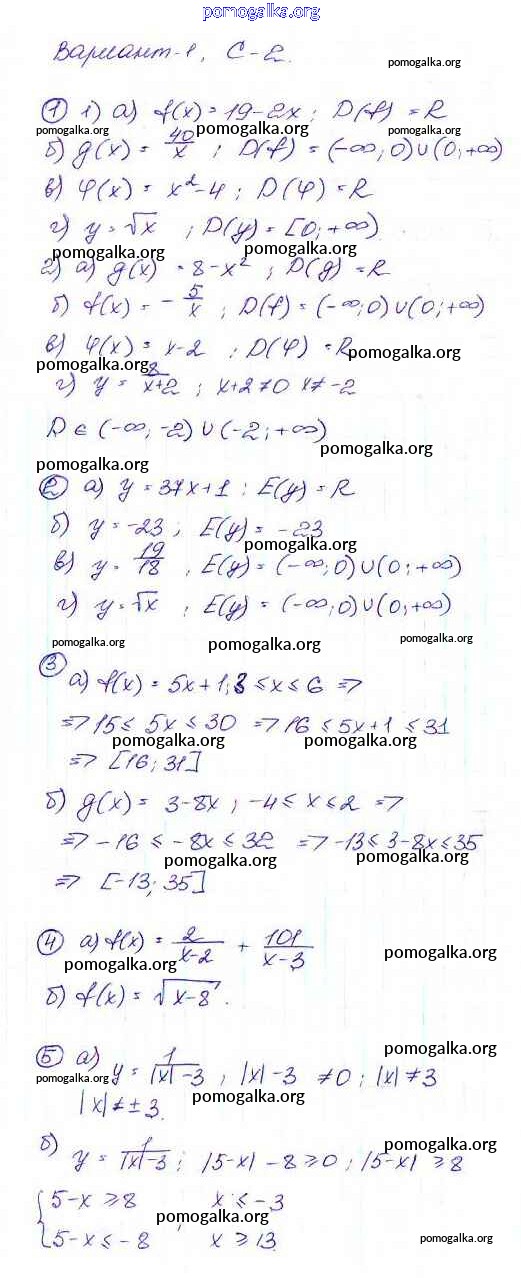 pomogalka.org
Вариант-1, С-2.
pomogalka.org
① 1) а) f(x) = 19-2x ; D(f) = R
pomogalka.org pomogalka.org pomogalka.org
б) g(x) = 40/x ; D(f) = (-∞; 0) ∪ (0; +∞)
в) φ(x) = x² - 4 ; D(φ) = R
г) y = √x ; D(y) = [0; +∞)
pomogalka.org pomogalka.org
2) а) g(x) = 8 - x² ; D(g) = R
б) f(x) = - 5/x ; D(f) = (-∞; 0) ∪ (0; +∞)
в) φ(x) = x-2 ; D(φ) = R
pomogalka.org pomogalka.org
г) y = 3/x+2 ; x+2≠0 x≠-2
D ∈ (-∞; -2) ∪ (-2; +∞)
pomogalka.org
pomogalka.org
② а) y = 37x+1 ; E(y) = R
б) y = -23 ; E(y) = -23
pomogalka.org
в) y = 19/18 , E(y) = (-∞; 0) ∪ (0; +∞)
г) y = √x , E(y) = (-∞; 0) ∪ (0; +∞)
pomogalka.org pomogalka.org pomogalka.org
③
а) f(x) = 5x+1, 3 ≤ x ≤ 6 =>
=> 15 ≤ 5x ≤ 30 => 16 ≤ 5x+1 ≤ 31
pomogalka.org pomogalka.org
=> [16; 31]
б) g(x) = 3-8x ; -4 ≤ x ≤ 2 =>
=> -16 ≤ -8x ≤ 32 => -13 ≤ 3-8x ≤ 35
pomogalka.org pomogalka.org
=> [-13; 35]
④ а) f(x) = 2/x-2 + 101/x-3
pomogalka.org pomogalka.org
б) f(x) = √x-8.
pomogalka.org
⑤ а) y = 1/|x|-3 , |x|-3 ≠0 ; |x| ≠3
pomogalka.org pomogalka.org
|x| ≠ ± 3.
pomogalka.org
б) y = 1/|x|-3 ; |5-x| - 8 ≥ 0 ; |5-x| ≥ 8
{ 5-x ≥ 8 x ≤ -3
pomogalka.org
5-x ≤ -8 x ≥ 13.
pomogalka.org